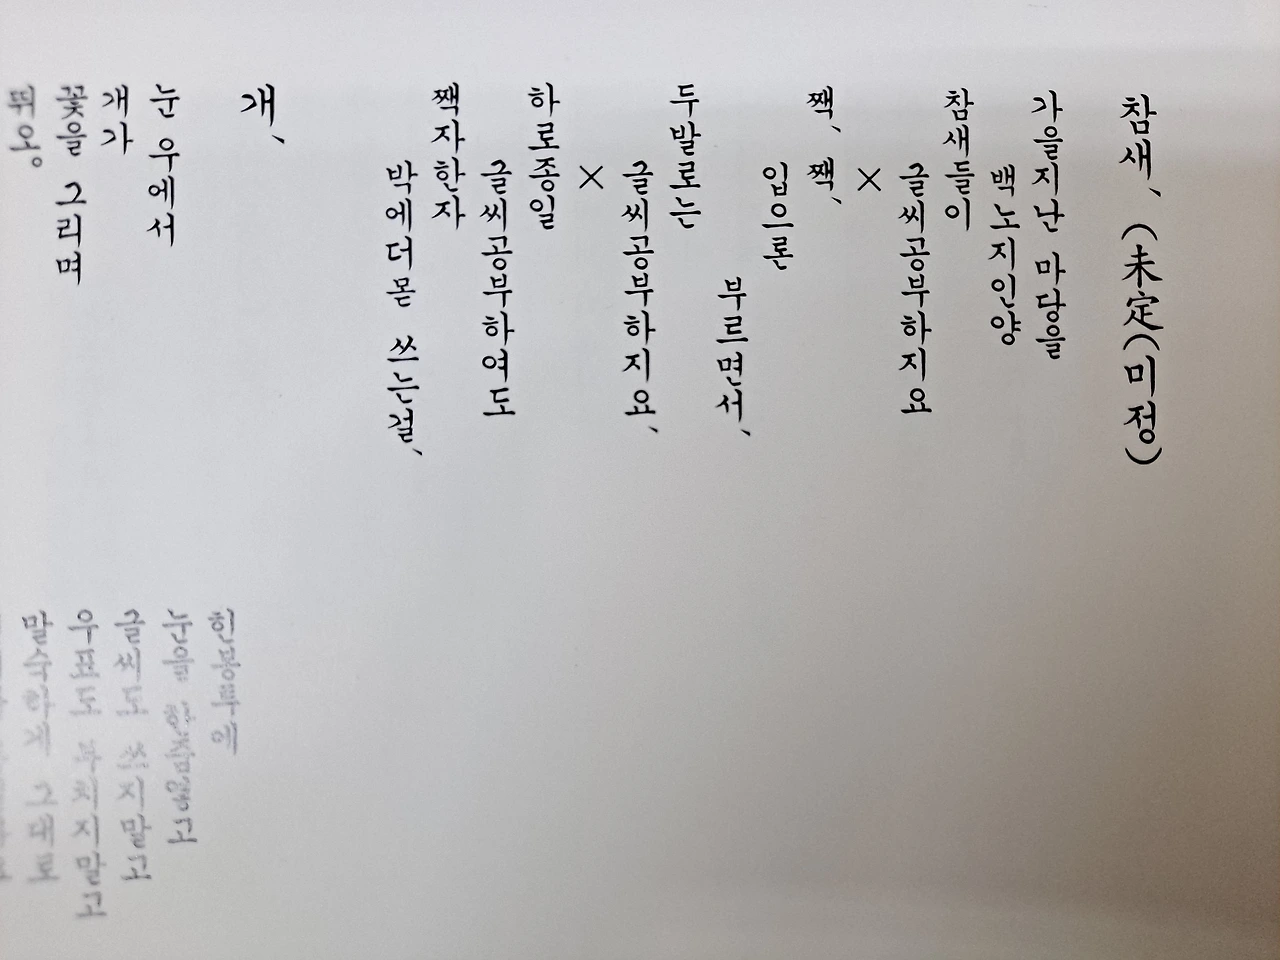 참새、(未定(미정)
가을지난 마당을
백노지인양
참새들이
글씨공부하지요
×
짹、짹、
입으론
부르면서、
두발로는
글씨공부하지요、
×
하로종일
글씨공부하여도
짹자한자
박에더몯 쓰는걸、
개、
눈 우에서
개가
꽃을 그리며
뛰오。
힌봉투에
눈을 한줌옇고
글씨도 쓰지말고
우표도 부치지말고
말숙하게 그대로